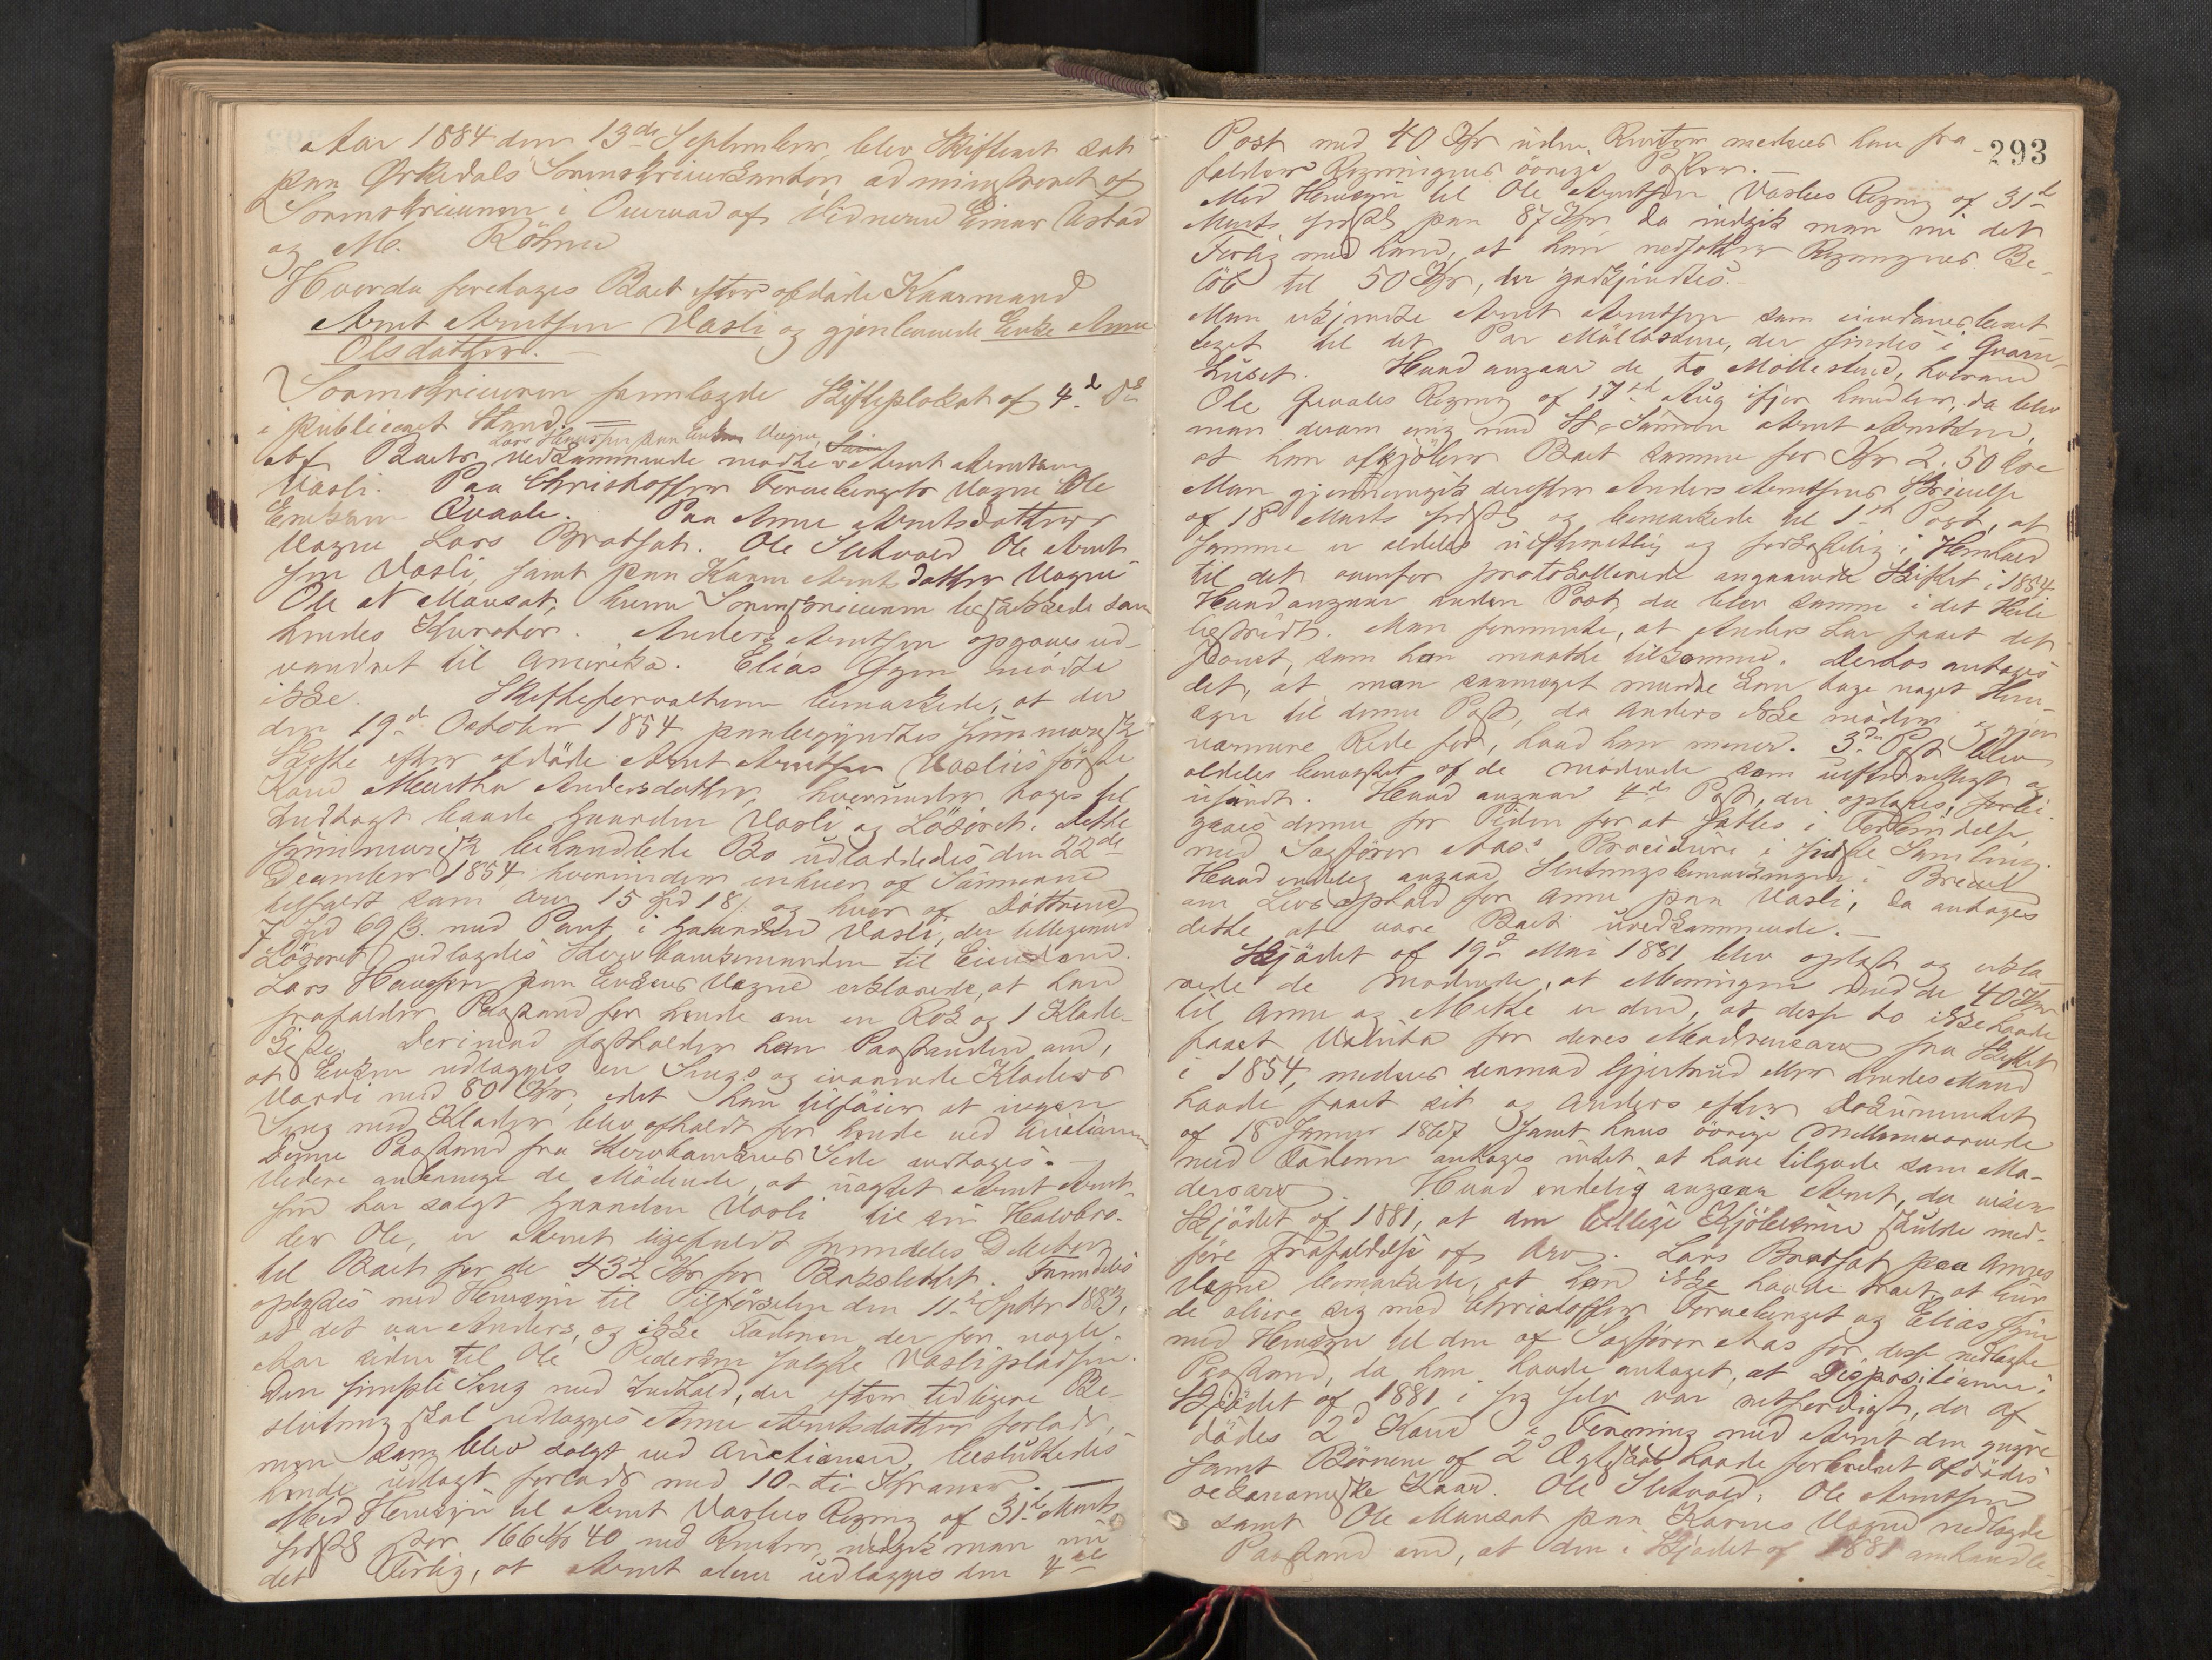 Aar 1884 den 13de September, blev Skifteret sat
paa Ørkedals Sorenskriverkontor, administreret af
Sorenskriveren i Overvær af Vidnerne Einar Ustad
og M. Röhme
Hvorda foretoges Boet efter afdöde Kaarmand
Arnt Arntsen Vasli og gjenlevende Enke Anne
Olsdatter.
Sorenskriveren fremlagde Skifteplakat af 4d ds
i publiceret Stand.
Lars Hansen paa Enkens Vegne,
Af Boets Vedkommende mödte Arnt Arntsen
Vasli. Paa Christoffer Vegne Ole
Eriksen Qvaale. Paa Anne Arntsdatters
Vegne Lars Bratset. Ole Sletvold Ole Arnt-
sen Vasli, samt paa Karen Arntsdatter Vegne
Ole at Mauset, hvem Sorenskriveren beskikkede som
hendes Kurator. Anders Arntsen opgaves ud-
vandret til Amerika. Elias mödte
ikke. Skifteforvalteren bemærkede, at der
den 19de October 1854 paabegyndtes summarisk
Skifte efter afdöde Arnt Arntsen Vaslis förste
Kone Maritha Andersdatter, hvorunder toges til
Indtægt baade Gaarden Vasli og Lösöret. Dette
summarisk behandlede Bo udloddedes den 22de
December 1854 hvorunder enhver af Sönnerne
tilfaldt som Arv 15 Spd 18 ß og hver af Döttrene
7 Spd 69 ß. med Pant i Gaarden Vasli, der tilligemed
Lösöret udlagdes Stervboenkemanden til Eiendom.
Lars Hansen paa Enkens Vegne erklærede, at han
frafalder Paastand for hende om en Rok og 1 Klæde-
kiste. Derimod fastholder han Paastanden om,
at Enken udlægges en Seng og iværende Klæders
Værdi med 80 Kr, idet han tilföier at ingen
Seng med Klæder blev afholdt for hende ved Auctionen
Denne Paastand fra Stervboenkens Side antoges.
Videre anbringe de Mödende, at uagtet Arnt Arnt-
sen har solgt Gaarden Vasli til sin Halvbro-
der Ole, er Arnt ligefuldt fremdeles Debitor
til Boet for de 432 Kr for Fremdeles
oplystes med Hensyn til Tilförselen den 11te Septbr 1883,
at det var Anders, og ikke Faderen, der for nogle
Aar siden til Ole Pedersen solgte Vaslipladsen.
Den simple Seng med Indhold, der efter tidligere Be-
slutning skal udlægges Anne Arntsdatter forlods,
men som blev solgt ved Auctionen, besluttedes
hende udlagt forlods med 10 – ti Kroner.
Med Hensyn til Arnt Vaslis Regning af 31te Marts
sidstl stor 166 Kr 40 med Renter, indgik man nu
det Forlig, at Arnt alene udlægges den 4de
293
Post med 40 Kr uden Renter medens han fra-
falder Regningens övrige Poster.
Med Hensyn til Ole Arntsen Vaslis Regning af 31te
Marts sidstl paa 87 Kr, da indgik man nu det
Forlig med ham, at han nedsætter Regningens Be-
löb til 50 Kr, der godkjendtes.
Man erkjendte Arnt Arntsen som eiendomsberet
tiget til det Par Möllestene, der findes i Qværn-
huset. Hvad angaar de to Möllestene, hvorom
Ole Qvaales Regning af 17de Aug ifjor handler, da blev
man derom enig med St. Sönnen Arnt Arntsen,
at han afkjöber Boet samme for Kr 2.50 Öre
Man gjennemgik derefter Anders Arntsens Skrivelse
af 18 Marts sidstl og bemærkede til 1ste Post, at
samme er aldeles uefterrettelig og forkastelig i Henhold
til det ovenfor protokollerede angaaende Skiftet i 1854
Hvad angaar anden Post, da blev samme i det Hele
bestridt. Man formente, at Anders har faaet det
Skovet, som han maatte tilkomme. Derhos antoges
det, at man saameget mindre kan tage noget Hen-
syn til denne Post, da Anders ikke möder og gjör
nærmere Rede for, hvad han mener. 3die Post blev
aldeles benægtet af de mödende som uefterretteligt og
usandt. Hvad angaar 4de Post, der oplæstes, forbi-
gaaes denne for Tiden for at sættes i Forbindelse
med Sagförer Aas's Procedure i sidste Samling.
Hvad endelig angaar Slutningsbemærkningen i Brevet
om Livsophold for Anne paa Vasli, da antages
dette at være Boet uvedkommende.
Skjödet af 19de Mai 1881 blev oplæst og erklæ-
rede de Mödende, at Meningen med de 40 Kr
til Anne og Mette er den, at disse to ikke havde
faaet Valuta for deres Mödrenearv fra Skiftet
i 1854, medens derimod Gjertrud eller hendes Mand
havde faaet sit og Anders efter Dokumentet
af 18 Januar 1867 samt hans övrige Mellemværende
med Faderen antoges intet at have tilgode som Mö-
drearv. Hvad endelig angaar Arnt, da viser
Skjödet af 1881, at den billige Kjöbesum skulde med-
före Frafaldelse af Arv. Lars Bratset paa Annes
Vegne bemærkede, at han ikke havde troet at bur-
de slutte sig med Christoffer og Elias
med Hensyn til den af Sagförer Aas for disse nedlagte
Paastand, da han havde antaget, at Dispositionen i
Skjödet af 1881 i sig selv var retfærdigt, da af
dödes 2d Kone i Forening med Arnt den yngre
samt Börnene af 2d Ægteskab havde forbedret Afdödes
oekonomiske Kaar. Ole Sletvold, Ole Arntsen
samt Ole Mauset paa Karens Vegne nedlagde
Paastand om, at den i Skjödet af 1881 omhandle-